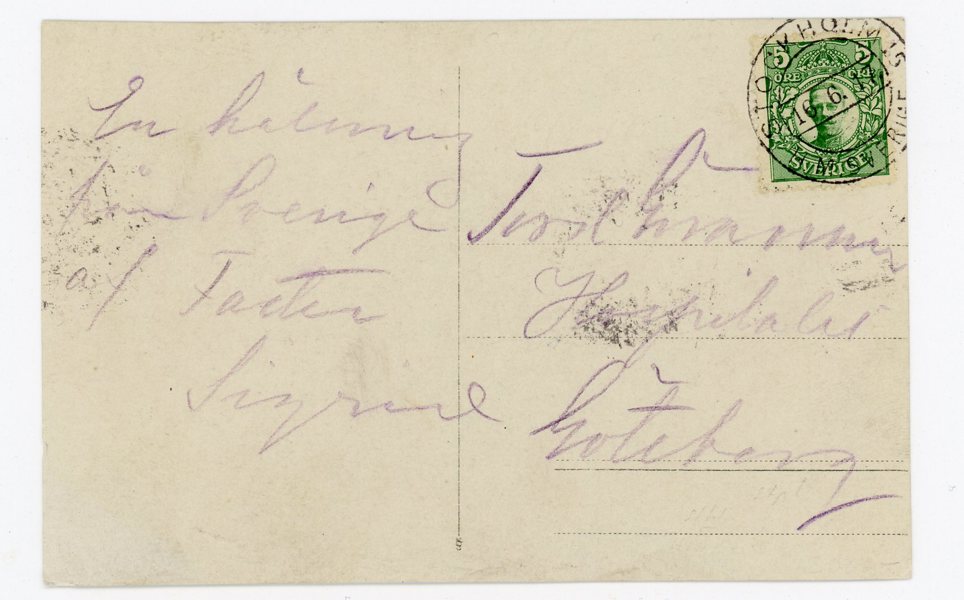 En hälsning
från Sverige
af Faster
Sigrid
Hospitalet
Göteborg
5 5
ÖRE ÖRE
SVERIGE
STOCKHOLM 16
16.6.